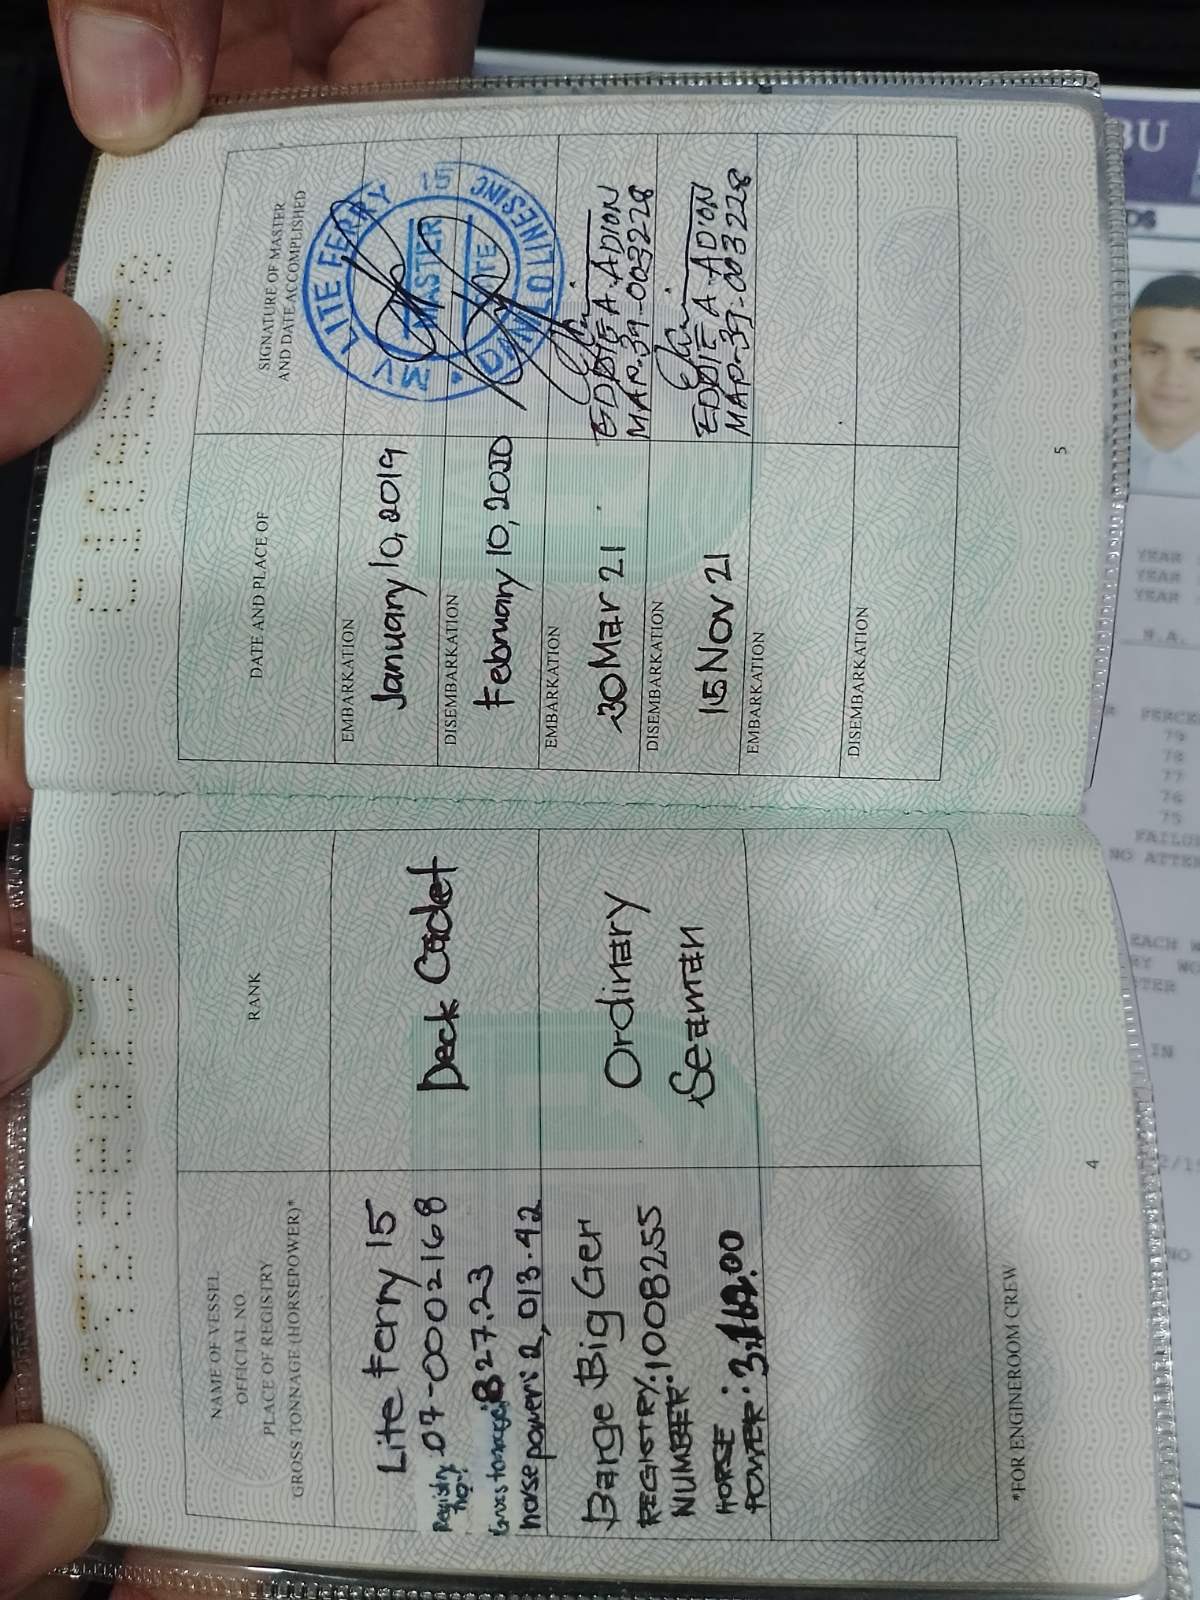 NAME OF VESSEL
OFFICIAL NO.
PLACE OF REGISTRY
GROSS TONNAGE (HORSEPOWER)*
RANK
Lite Ferry 15
Registry no: 07-0002168
Gross tonnage: 827.23
horse power: 2,013.42
Deck Cadet
Barge Big Ger
REGISTRY NUMBER: 1008255
HORSE POWER: 3,162.00
Ordinary
Seaman
*FOR ENGINEROOM CREW
4
DATE AND PLACE OF
SIGNATURE OF MASTER
AND DATE ACCOMPLISHED
EMBARKATION
January 10, 2019
DISEMBARKATION
February 10, 2020
MV LITE FERRY 15
MASTER
EMBARKATION
30 Mar 21
EDDIE A. ADION
MAP-39-003228
DISEMBARKATION
15 Nov 21
EDDIE A. ADION
MAP-39-003228
EMBARKATION
DISEMBARKATION
5
BU
YEAR
YEAR
YEAR
N.A.
79
78
77
76
75
NO
EACH
IN
NO